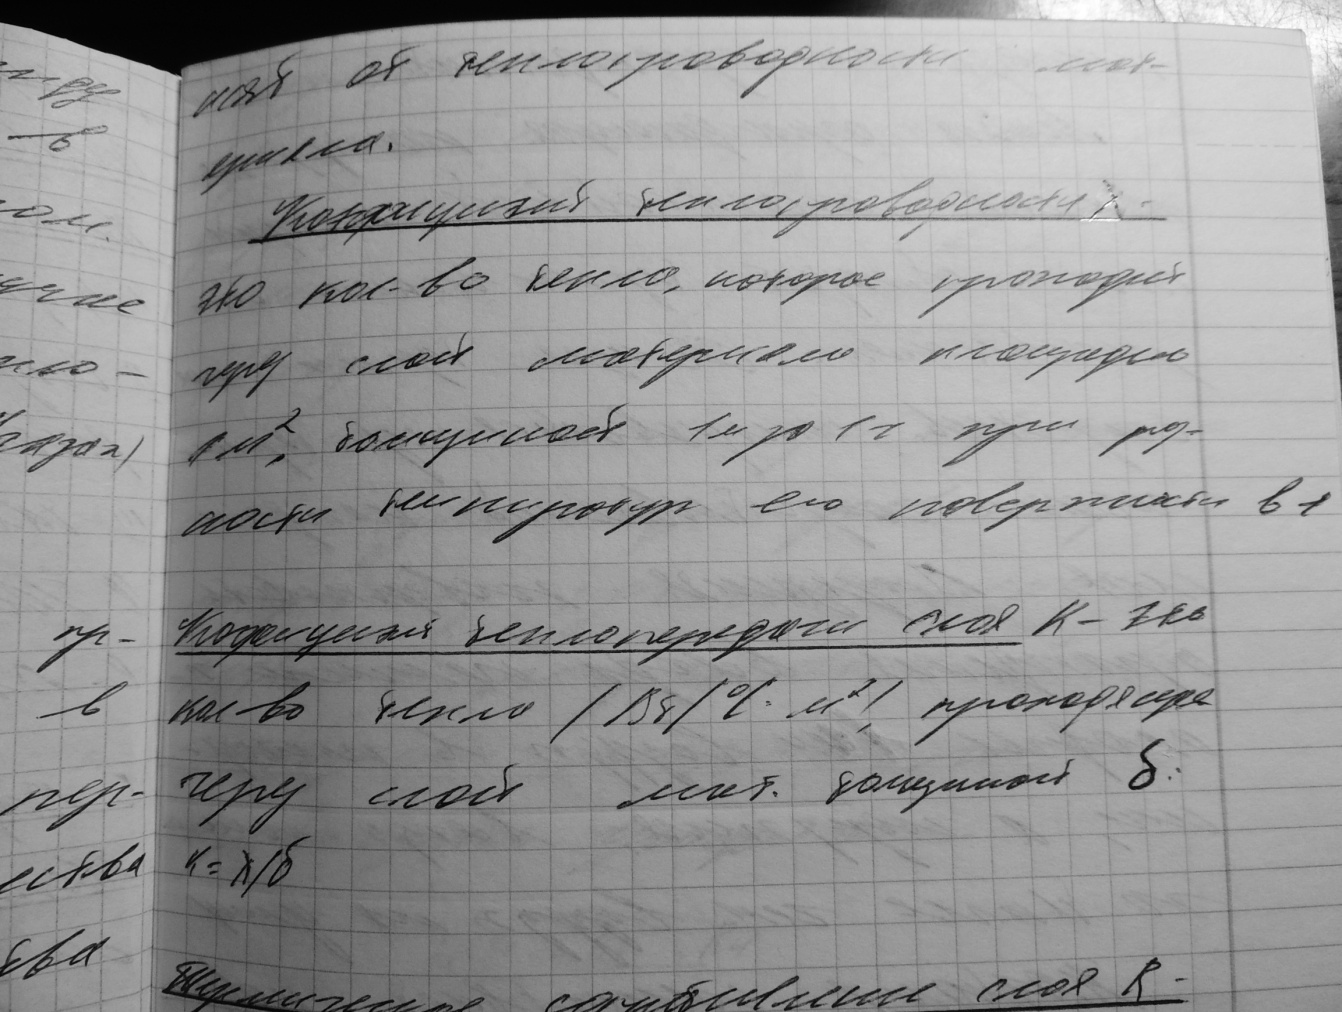 от теплопроводности мат-
ериала.
Коэффициент теплопроводности λ -
это кол-во тепла, которое проходит
через слой материала площадью
1 м², толщиной 1м за 1ч при раз-
ности температур его поверхности в 1
Коэффициент теплопередачи слоя К - это
кол-во тепла (Вт/°С·м²), проходящее
через слой мат. толщиной δ.
к=λ/δ
Термическое сопротивление слоя R -
пр-
в
ества
тва